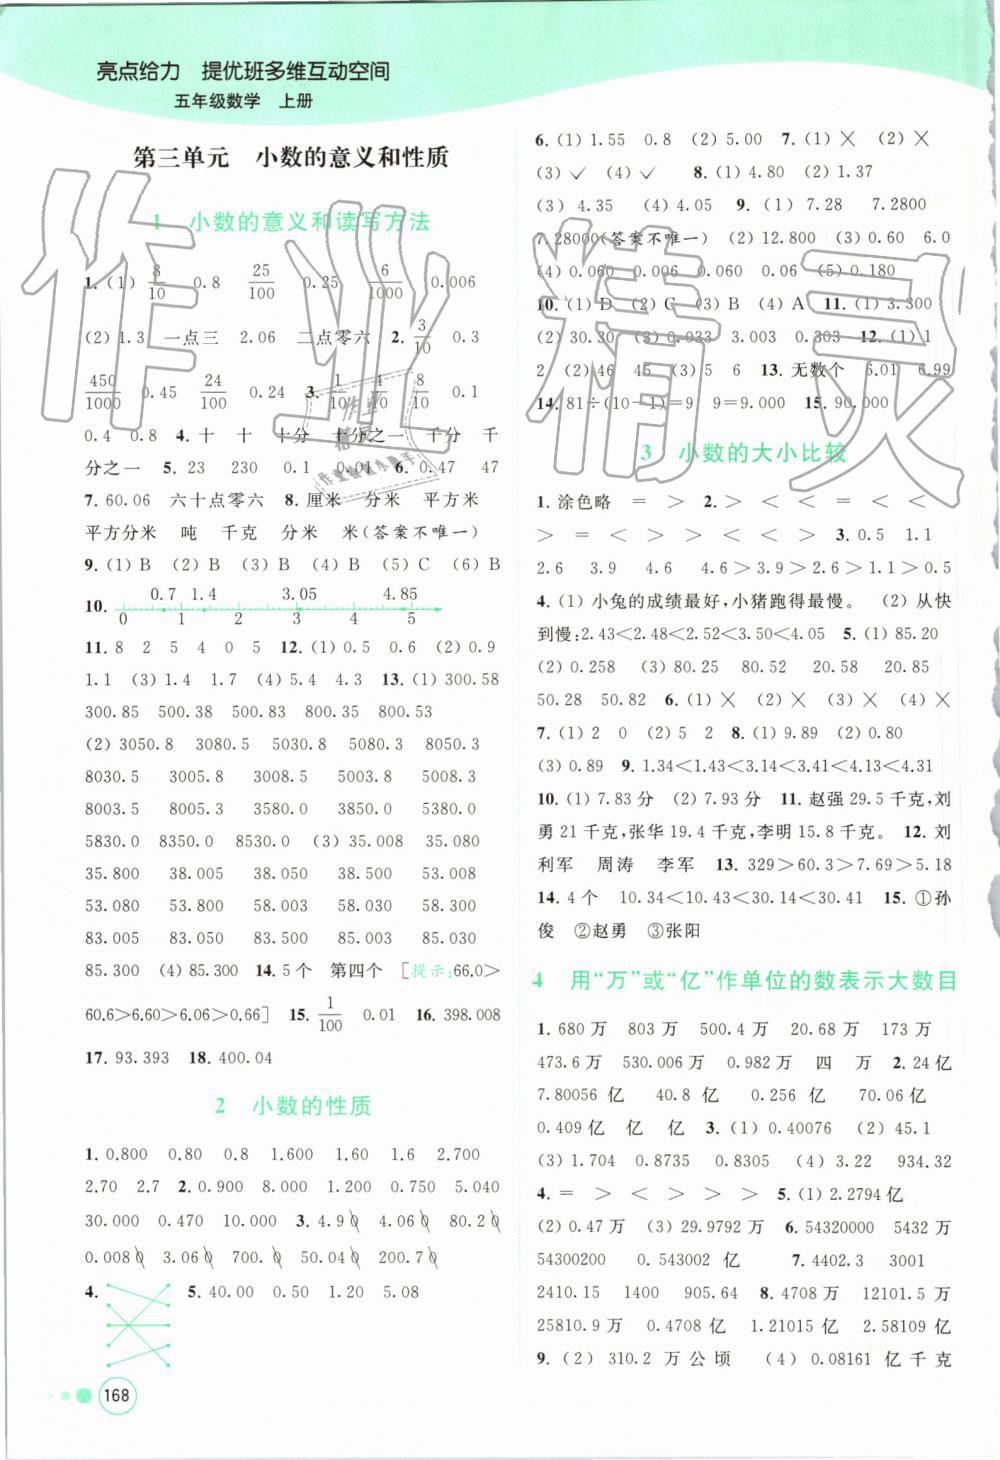 亮点给力 提优班多维互动空间
五年级数学 上册
第三单元 小数的意义和性质
1 小数的意义和读写方法
1. (1) 8/10 0.8 25/100 0.25 6/1000 0.006
(2) 1.3 一点三 2.06 二点零六 2. 3/10 0.3
450/1000 0.45 24/100 0.24 3. 1/10 4/10 8/10 0.1
0.4 0.8 4. 十 十 十分 十分之一 千分 千
分之一 5. 23 230 0.1 0.01 6. 0.47 47
7. 60.06 六十点零六 8. 厘米 分米 平方米
平方分米 吨 千克 分米 米(答案不唯一)
9. (1) B (2) B (3) B (4) B (5) C (6) B
10. 0.7 1.4 3.05 4.85
0 1 2 3 4 5
11. 8 2 5 4 0 5 12. (1) 0.5 0.6 (2) 0.9
1.1 (3) 1.4 1.7 (4) 5.4 4.3 13. (1) 300.58
300.85 500.38 500.83 800.35 800.53
(2) 3050.8 3080.5 5030.8 5080.3 8050.3
8030.5 3005.8 3008.5 5003.8 5008.3
8003.5 8005.3 3580.0 3850.0 5380.0
5830.0 8350.0 8530.0 (3) 35.008 35.080
35.800 38.005 38.050 38.500 53.008
53.080 53.800 58.003 58.030 58.300
83.005 83.050 83.500 85.003 85.030
85.300 (4) 85.300 14. 5个 第四个 [提示:66.0>
60.6>6.60>6.06>0.66] 15. 1/100 0.01 16. 398.008
17. 93.393 18. 400.04
2 小数的性质
1. 0.800 0.80 0.8 1.600 1.60 1.6 2.700
2.70 2.7 2. 0.900 8.000 1.200 0.750 5.040
30.000 0.470 10.000 3. 4.90 4.060 80.20
0.0080 3.060 700.0 50.040 200.70
4. 5. 40.00 0.50 1.20 5.08
168
6. (1) 1.55 0.8 (2) 5.00 7. (1) × (2) ×
(3) ✓ (4) ✓ 8. (1) 4.80 (2) 1.37
(3) 4.35 (4) 4.05 9. (1) 7.28 7.2800
7.28000(答案不唯一) (2) 12.800 (3) 0.60 6.0
(4) 0.060 0.006 0.060 0.06 (5) 0.180
10. (1) D (2) C (3) B (4) A 11. (1) 3.300
(2) 30.30 (3) 0.033 3.003 0.303 12. (1) 1
2 (2) 46 45 (3) 5 6 13. 无数个 6.01 6.99
14. 81÷(10－1)＝9 9＝9.000 15. 90.000
3 小数的大小比较
1. 涂色略 ＝ ＞ 2. ＞ ＜ ＝ ＜ ＜
＞ ＝ ＜ ＞ ＞ ＜ ＜ ＜ ＞ 3. 0.5 1.1
2.6 3.9 4.6 4.6＞3.9＞2.6＞1.1＞0.5
4. (1) 小兔的成绩最好,小猪跑得最慢。 (2) 从快
到慢:2.43＜2.48＜2.52＜3.50＜4.05 5. (1) 85.20
(2) 0.258 (3) 80.25 80.52 20.58 20.85
50.28 50.82 6. (1) × (2) × (3) × (4) ×
7. (1) 2 0 (2) 5 2 8. (1) 9.89 (2) 0.80
(3) 0.89 9. 1.34＜1.43＜3.14＜3.41＜4.13＜4.31
10. (1) 7.83分 (2) 7.93分 11. 赵强29.5千克,刘
勇21千克,张华19.4千克,李明15.8千克。 12. 刘
利军 周涛 李军 13. 329＞60.3＞7.69＞5.18
14. 4个 10.34＜10.43＜30.14＜30.41 15. ①孙
俊 ②赵勇 ③张阳
4 用“万”或“亿”作单位的数表示大数目
1. 680万 803万 500.4万 20.68万 173万
473.6万 530.006万 0.982万 四 万 2. 24亿
7.80056亿 40.8亿 0.256亿 70.06亿
0.409亿 亿 亿 3. (1) 0.40076 (2) 45.1
(3) 1.704 0.8735 0.8305 (4) 3.22 934.32
4. ＝ ＞ ＜ ＞ ＞ ＞ 5. (1) 2.2794亿
(2) 0.47万 (3) 29.9792万 6. 54320000 5432万
54300200 0.543002亿 7. 4402.3 3001
2410.15 1400 905.64 8. 4708万 12101.5万
25810.9万 0.4708亿 1.21015亿 2.58109亿
9. (2) 310.2万公顷 (4) 0.08161亿千克
作业精灵